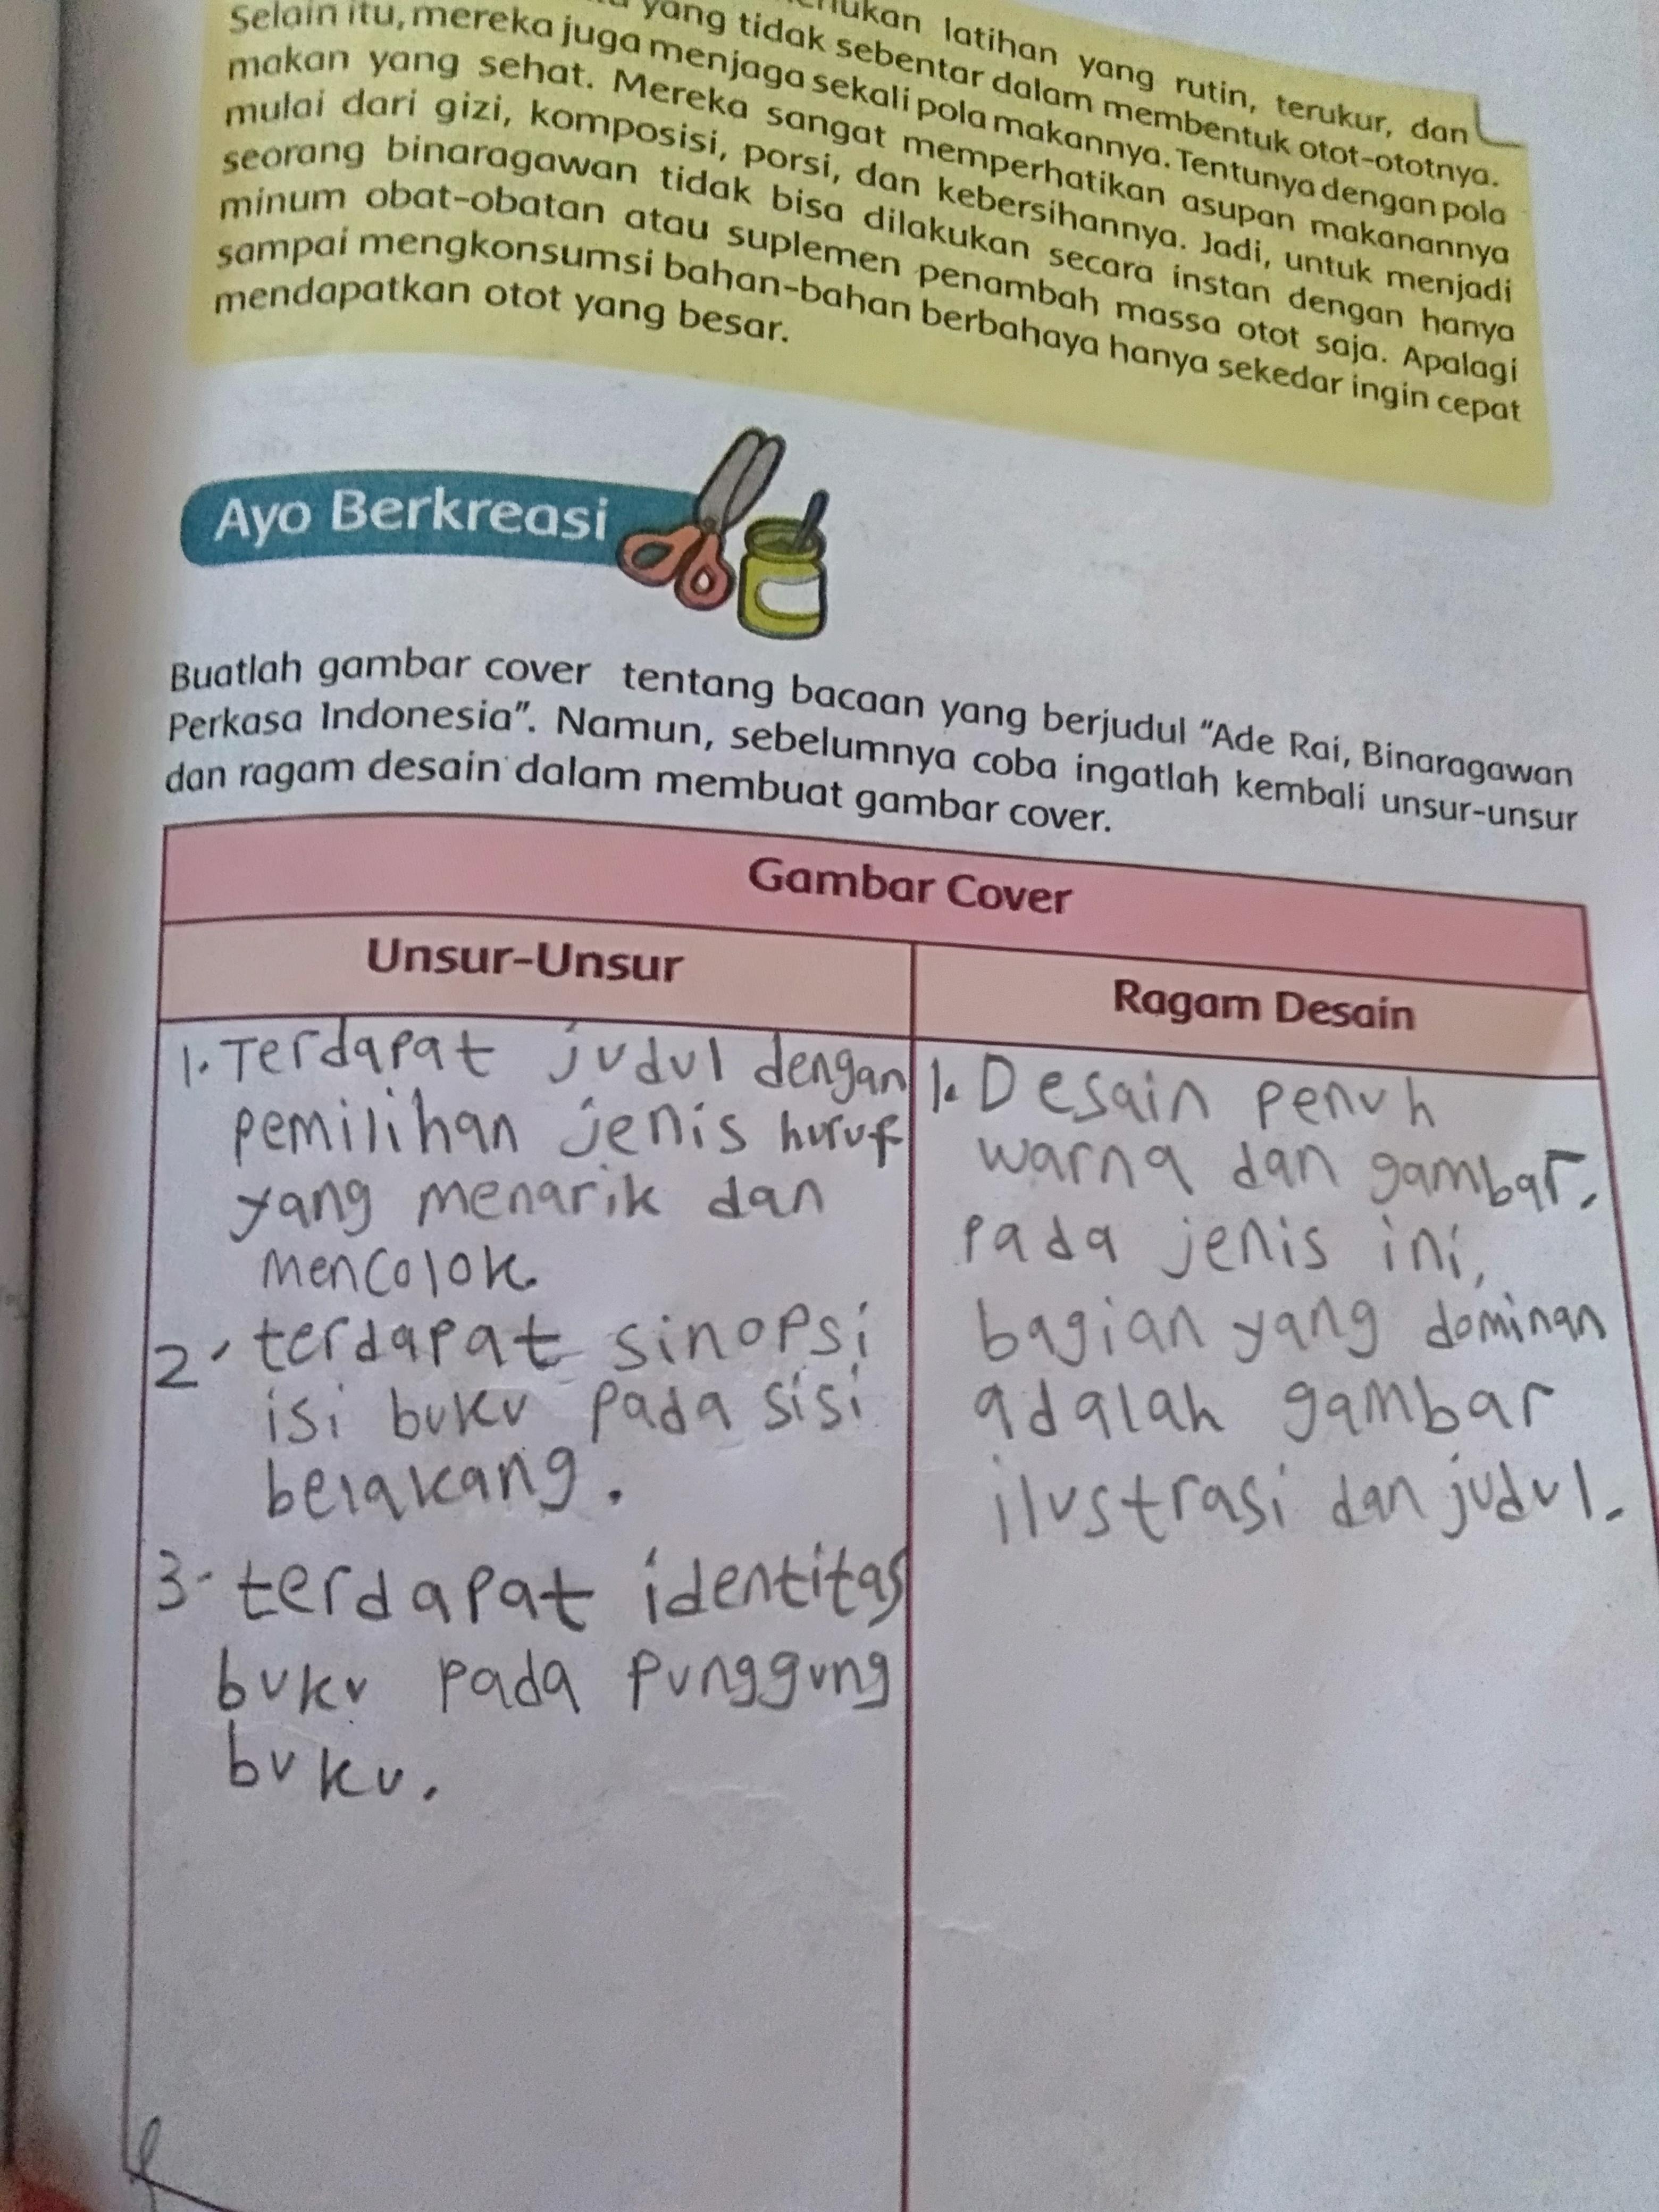 latihan yang rutin, terukur, dan
yang tidak sebentar dalam membentuk otot-ototnya.
Selain itu, mereka juga menjaga sekali pola makannya. Tentunya dengan pola
makan yang sehat. Mereka sangat memperhatikan asupan makanannya
mulai dari gizi, komposisi, porsi, dan kebersihannya. Jadi, untuk menjadi
seorang binaragawan tidak bisa dilakukan secara instan dengan hanya
minum obat-obatan atau suplemen penambah massa otot saja. Apalagi
sampai mengkonsumsi bahan-bahan berbahaya hanya sekedar ingin cepat
mendapatkan otot yang besar.
Ayo Berkreasi
Buatlah gambar cover tentang bacaan yang berjudul "Ade Rai, Binaragawan
Perkasa Indonesia". Namun, sebelumnya coba ingatlah kembali unsur-unsur
dan ragam desain dalam membuat gambar cover.
Gambar Cover
Unsur-Unsur
1. Terdapat judul dengan
pemilihan jenis huruf
yang menarik dan
mencolok.
2. terdapat sinopsi
isi buku pada sisi
belakang.
3. terdapat identitas
buku pada punggung
buku.
Ragam Desain
1. Desain penuh
warna dan gambar.
Pada jenis ini,
bagian yang dominan
adalah gambar
ilustrasi dan judul.